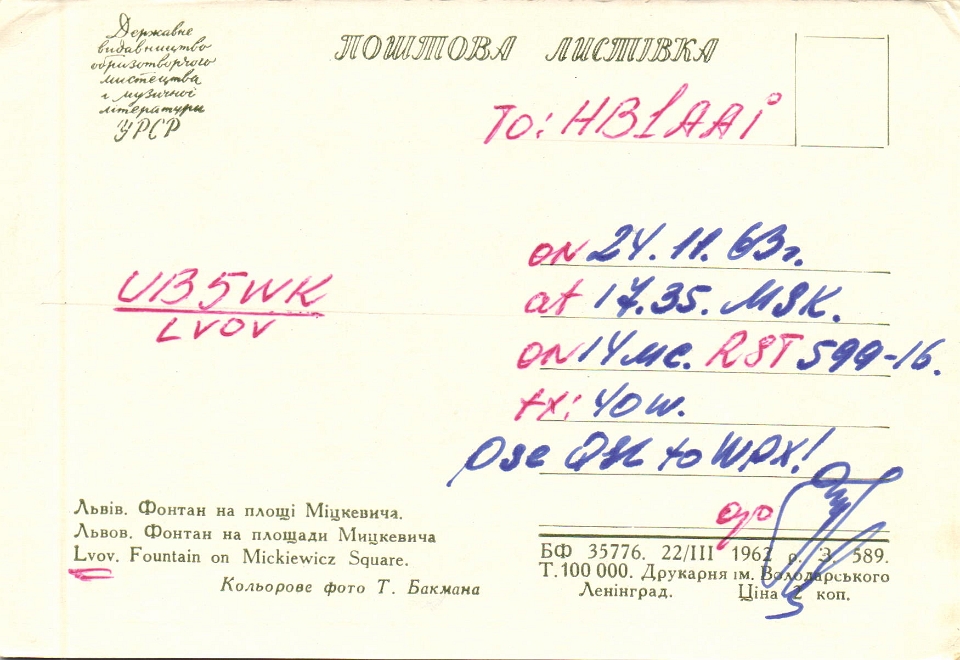 Державне
видавництво
образотворчого
мистецтва
і музичної
літератури
УРСР
ПОШТОВА ЛИСТІВКА
To: HB1AAi
on 24.11.63г.
at 17.35. MSK.
on 14 мс. RST 599-16.
tx: 40w.
Pse QSL to WPX!
op
UB5WK
LVOV
Львів. Фонтан на площі Міцкевича.
Львов. Фонтан на площади Мицкевича
Lvov. Fountain on Mickiewicz Square.
Кольорове фото Т. Бакмана
БФ 35776. 22/III 1962 р. З. 589.
Т. 100 000. Друкарня ім. Володарського
Ленінград. Ціна 2 коп.